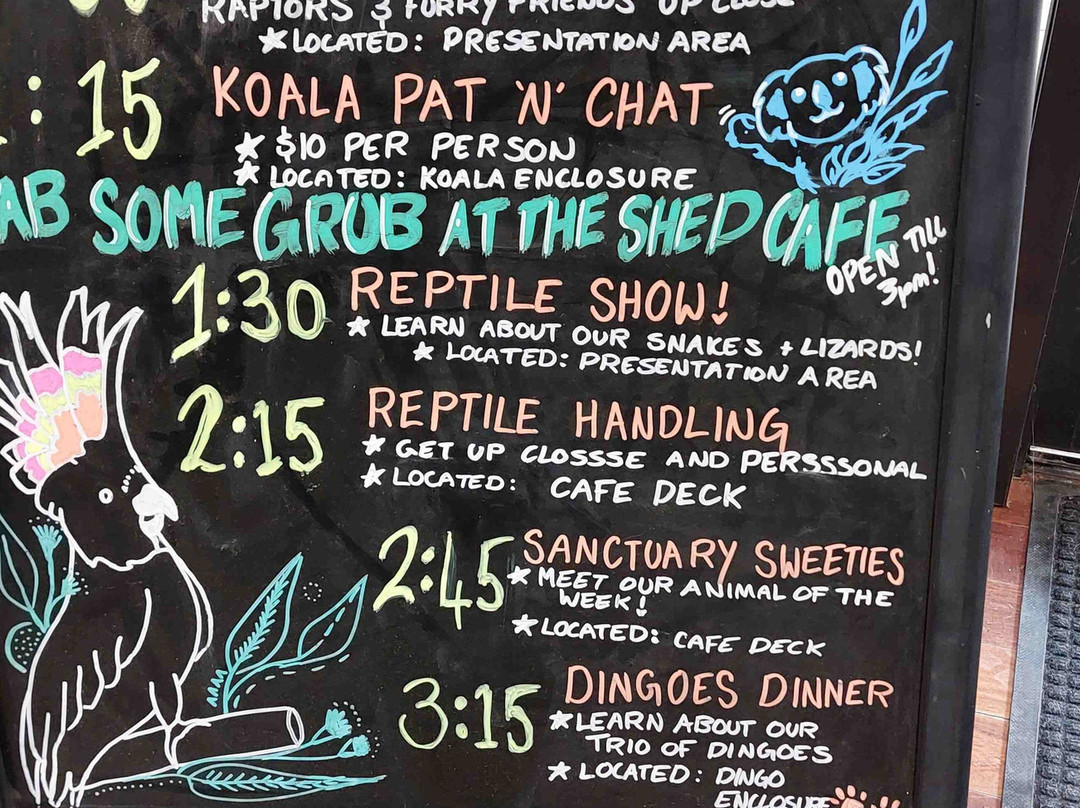 RAPTORS & FURRY FRIENDS UP CLOSE
★ LOCATED: PRESENTATION AREA
: 15 KOALA PAT 'N' CHAT
★ $10 PER PERSON
★ LOCATED: KOALA ENCLOSURE
AB SOME GRUB AT THE SHED CAFE
OPEN TILL
3pm!
1:30 REPTILE SHOW!
★ LEARN ABOUT OUR SNAKES + LIZARDS!
★ LOCATED: PRESENTATION AREA
2:15 REPTILE HANDLING
★ GET UP CLOSSSE AND PERSSSONAL
★ LOCATED: CAFE DECK
2:45 SANCTUARY SWEETIES
★ MEET OUR ANIMAL OF THE
WEEK!
★ LOCATED: CAFE DECK
3:15 DINGOES DINNER
★ LEARN ABOUT OUR
TRIO OF DINGOES
★ LOCATED: DINGO
ENCLOSURE